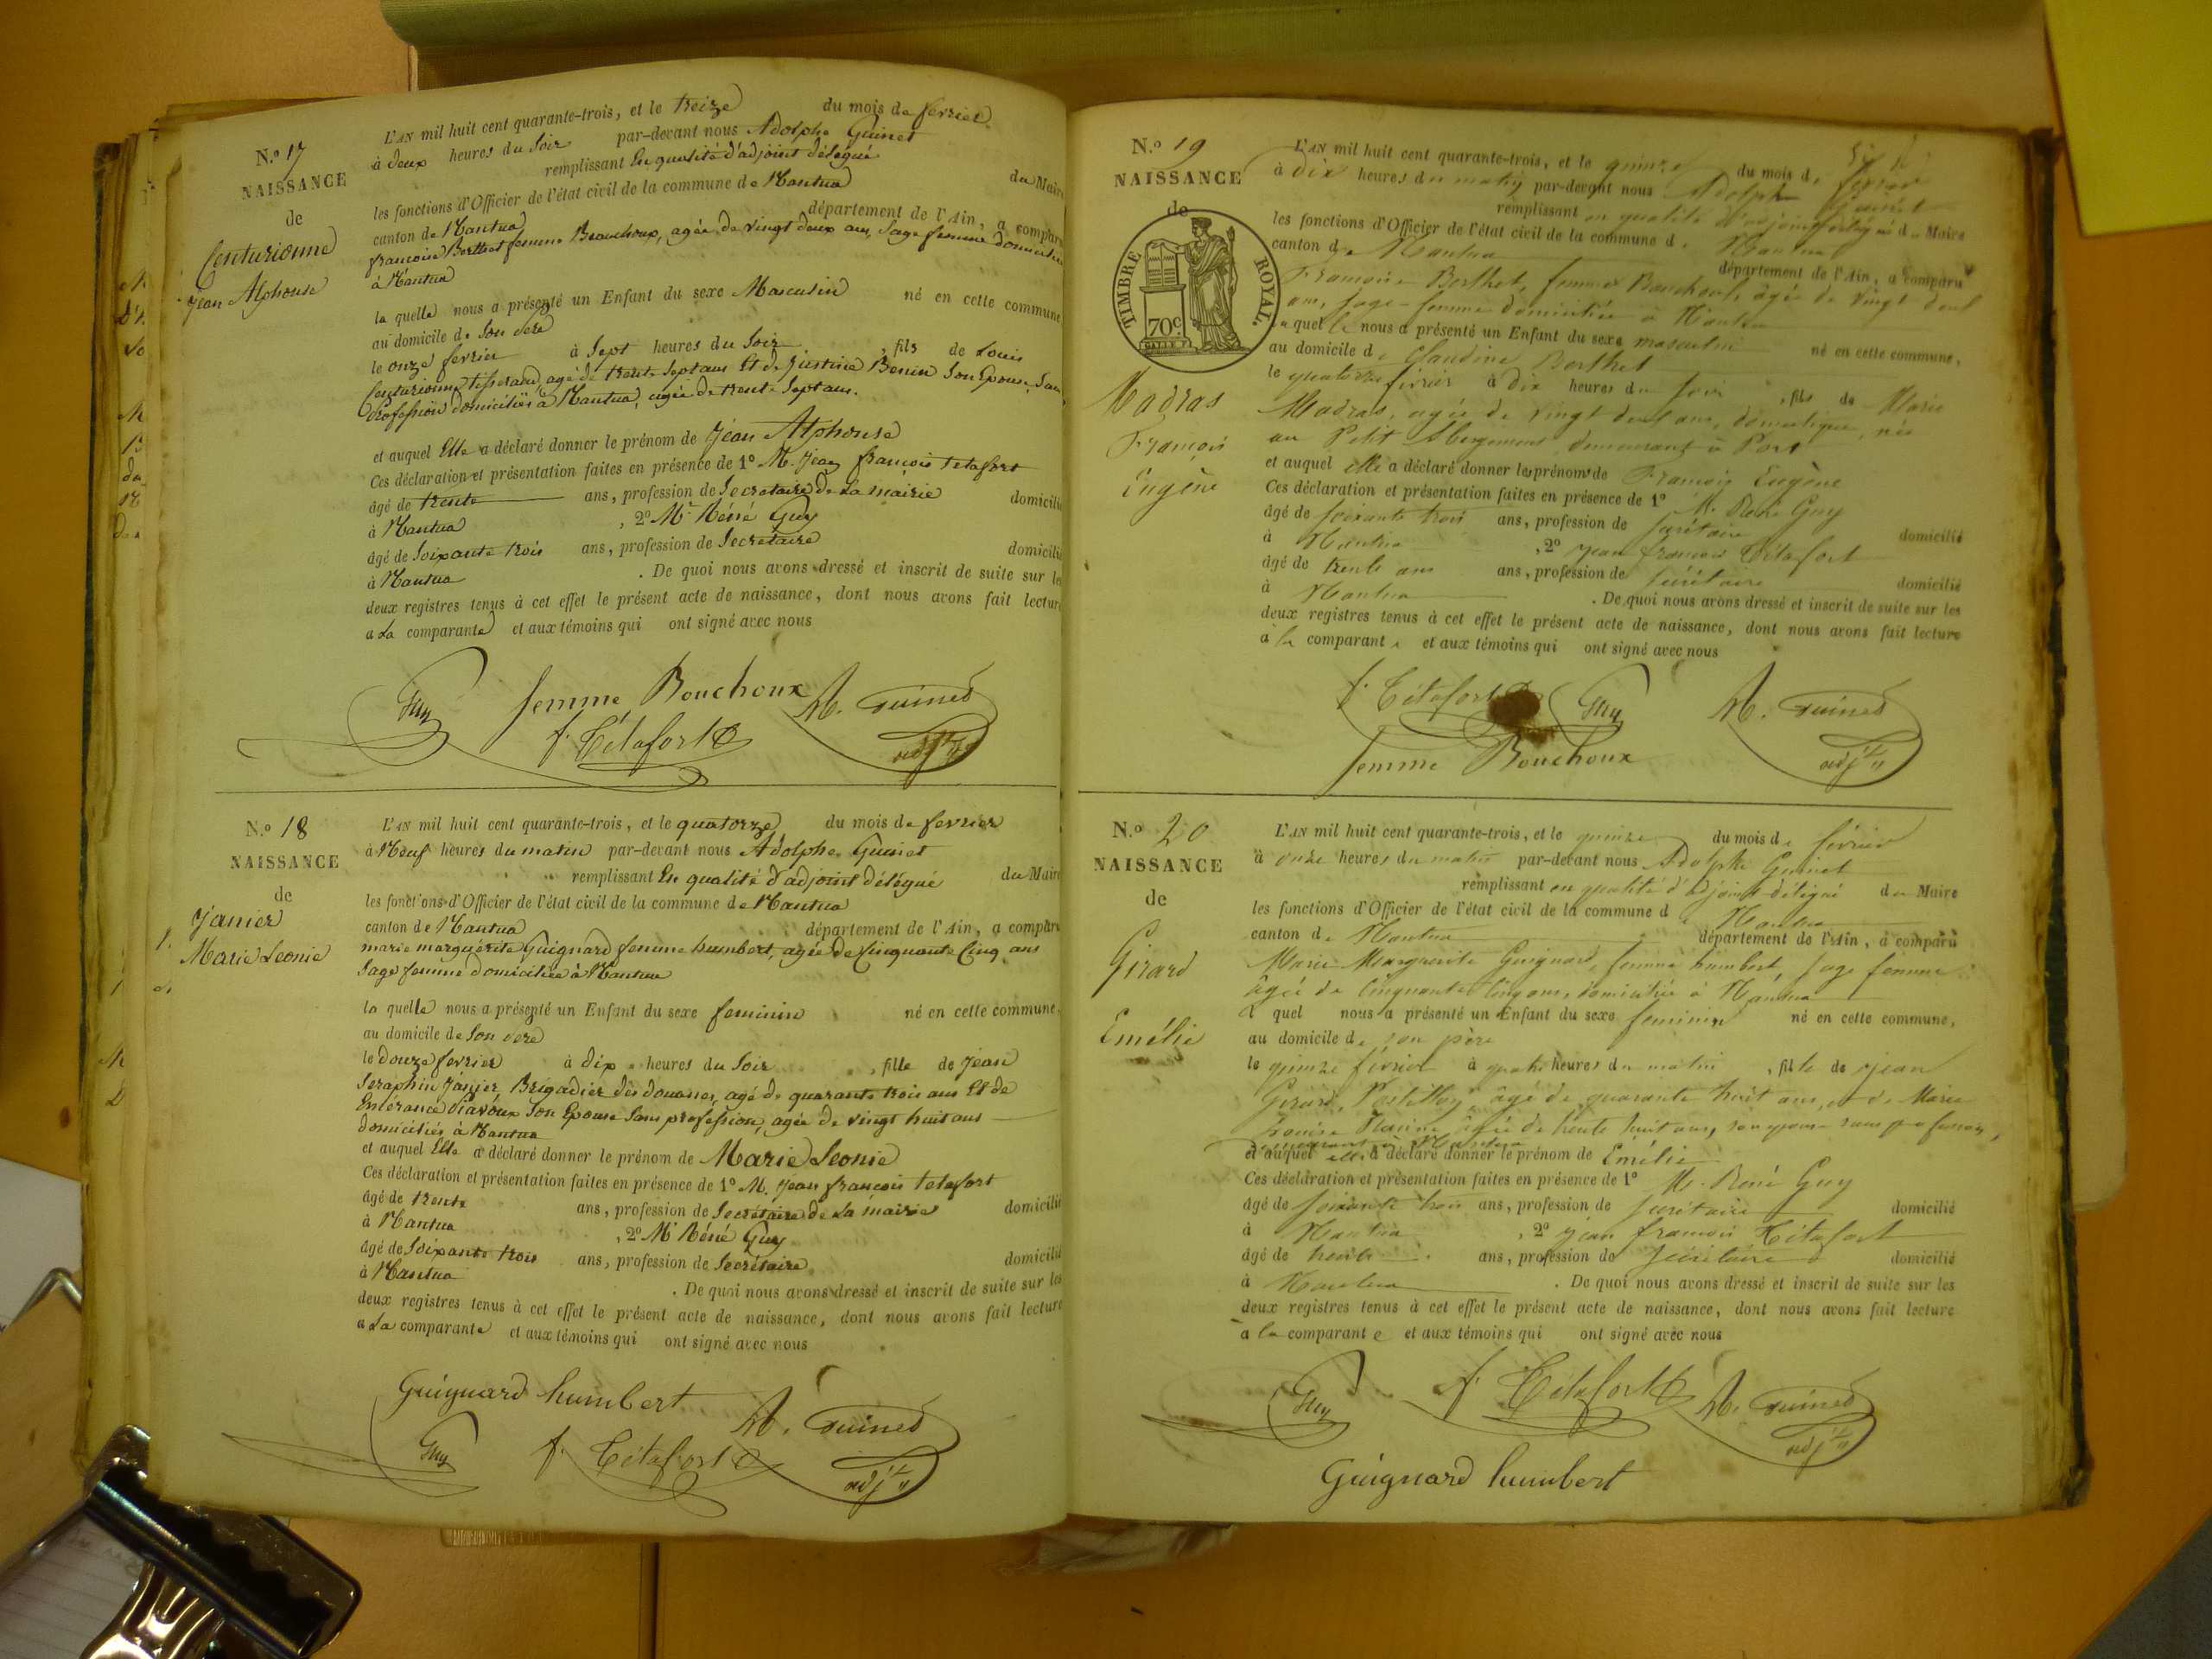 N.º 17
NAISSANCE
de
Centurionne
Jean Alphonse
L'AN mil huit cent quarante-trois, et le treize du mois de fevrier
à deux heures du Soir par-devant nous Adolphe Guinet
remplissant En qualité d'adjoint délégué du Maire
les fonctions d'Officier de l'état civil de la commune de Nantua
canton de Nantua département de l'Ain, a comparu
francoise Berthet femme Bouchoux, agée de vingt deux ans, Sage femme domiciliée
à Nantua
la quelle nous a présenté un Enfant du sexe Masculin né en cette commune
au domicile de Son père
le onze fevrier à Sept heures du Soir, fils de Louis
Centurionne tisserand, agé de trente Sept ans Et de Justine Benin Son Epouse, Sans
Profession domiciliés à Nantua, agée de trente Sept ans.
et auquel Elle a déclaré donner le prénom de Jean Alphonse
Ces déclaration et présentation faites en présence de 1º M. Jean francois tetafort
âgé de trente ans, profession de Secretaire de La mairie domicilié
à Nantua, 2º Mr Réné Guy
âgé de Soixante trois ans, profession de Secretaire domicilié
à Nantua. De quoi nous avons dressé et inscrit de suite sur les
deux registres tenus à cet effet le présent acte de naissance, dont nous avons fait lecture
a La comparante et aux témoins qui ont signé avec nous
Guy femme Bouchoux A. Guinet
f. Tétafort adjt
N.º 18
NAISSANCE
de
Janier
Marie Leonie
L'AN mil huit cent quarante-trois, et le quatorze du mois de fevrier
à Neuf heures du matin par-devant nous Adolphe Guinet
remplissant En qualité d'adjoint délégué du Maire
les fonctions d'Officier de l'état civil de la commune de Nantua
canton de Nantua département de l'Ain, a comparu
marie marguerite Guignard femme humbert, agée de Cinquante Cinq ans
Sage femme domiciliée à Nantua
la quelle nous a présenté un Enfant du sexe feminin né en cette commune,
au domicile de Son père
le douze fevrier à dix heures du Soir, fille de Jean
Seraphin Janier, Brigadier des douanes, agé de quarante trois ans Et de
Son Epouse Sans profession, agée de vingt huit ans
domiciliés à Nantua
et auquel Elle a déclaré donner le prénom de Marie Leonie
Ces déclaration et présentation faites en présence de 1º M. Jean francois tetafort
âgé de trente ans, profession de Secrétaire de La mairie domicilié
à Nantua, 2º Mr Réné Guy
âgé de Soixante trois ans, profession de Secrétaire domicilié
à Nantua. De quoi nous avons dressé et inscrit de suite sur les
deux registres tenus à cet effet le présent acte de naissance, dont nous avons fait lecture
a La comparante et aux témoins qui ont signé avec nous
Guignard humbert
Guy f. Tétafort A. Guinet
adjt
N.º 19
NAISSANCE
de
TIMBRE ROYAL.
70c.
Madras
François
Eugène
L'AN mil huit cent quarante-trois, et le quinze du mois de février
à dix heures du matin par-devant nous Adolphe Guinet
remplissant en qualité d'adjoint délégué du Maire
les fonctions d'Officier de l'état civil de la commune de Nantua
canton de Nantua département de l'Ain, a comparu
Françoise Berthet, femme Bouchoux, âgée de vingt deux
ans, sage-femme domiciliée à Nantua
laquelle nous a présenté un Enfant du sexe masculin né en cette commune,
au domicile de Claudine Berthet
le quatorze février à dix heures du soir, fils de Marie
Madras, agée de vingt deux ans, domestique, née
au Petit Abergement, demeurant à Port
et auquel elle a déclaré donner les prénoms de François Eugène
Ces déclaration et présentation faites en présence de 1º M. René Guy
âgé de soixante trois ans, profession de secrétaire domicilié
à Nantua, 2º Jean François Tétafort
âgé de trente ans ans, profession de secrétaire domicilié
à Nantua. De quoi nous avons dressé et inscrit de suite sur les
deux registres tenus à cet effet le présent acte de naissance, dont nous avons fait lecture
à la comparante et aux témoins qui ont signé avec nous
f. Tétafort Guy A. Guinet
femme Bouchoux adjt
N.º 20
NAISSANCE
de
Girard
Emélie
L'AN mil huit cent quarante-trois, et le quinze du mois de février
à onze heures du matin par-devant nous Adolphe Guinet
remplissant en qualité d'adjoint délégué du Maire
les fonctions d'Officier de l'état civil de la commune de Nantua
canton de Nantua département de l'Ain, a comparu
Marie Marguerite Guignard, femme humbert, sage femme
âgée de cinquante cinq ans, domiciliée à Nantua
quel nous a présenté un Enfant du sexe feminin né en cette commune,
au domicile de son père
le quinze février à quatre heures du matin, fille de Jean
Girard, Postillon, âgé de quarante huit ans, et de Marie
Louise âgée de trente huit ans, son épouse sans profession,
demeurant à Nantua
et auquel elle a déclaré donner le prénom de Emélie
Ces déclaration et présentation faites en présence de 1º M. René Guy
âgé de soixante trois ans, profession de secrétaire domicilié
à Nantua, 2º Jean François Tétafort
âgé de trente ans, profession de secrétaire domicilié
à Nantua. De quoi nous avons dressé et inscrit de suite sur les
deux registres tenus à cet effet le présent acte de naissance, dont nous avons fait lecture
à la comparante et aux témoins qui ont signé avec nous
Guy f. Tétafort A. Guinet
adjt
Guignard humbert